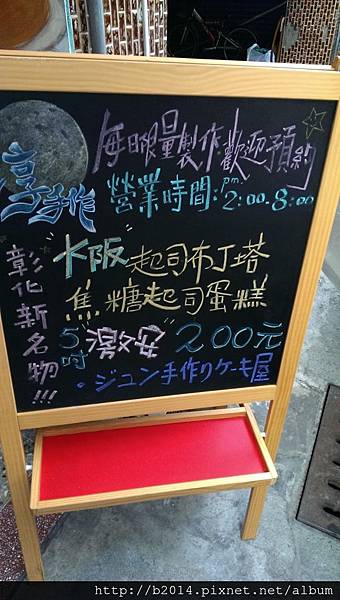 享手作
每日限量製作歡迎預約
營業時間:pm 2:00-8:00
彰化新名物!!!
"大阪"起司布丁塔
焦糖起司蛋糕
5吋"激安"200元
ジュン手作りケーキ屋
http://b2014.pixnet.net/album